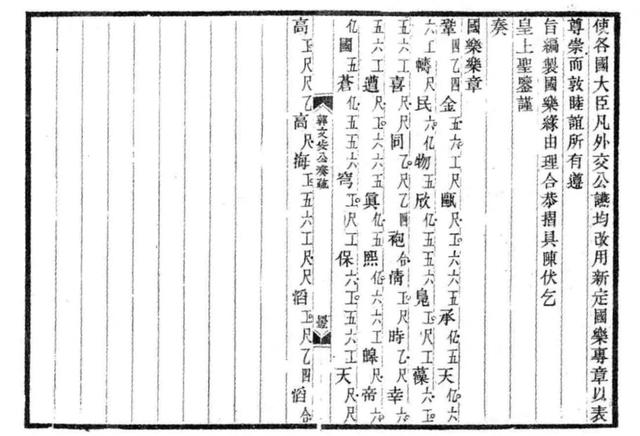 使各國大臣凡外交公讌均改用新定國樂專章以表
尊崇而敦睦誼所有遵
旨編製國樂緣由理合恭摺具陳伏乞
皇上聖鑒謹
奏
國樂樂章
鞏四乙四金五六工尺甌尺工六六五承亿五天亿六
六工幬尺民六亿物五五六欣亿六鳧尺工藻六工
五六工喜尺尺同乙尺四袍合倩工尺時乙尺幸六
五六工遭尺工六六五眞亿五熙亿六六工皞尺帝六
亿國五蒼亿五五六穹工尺工保六工五六工天尺尺
郭文安公奏疏
高工尺尺乙高尺海工五六工尺尺滔工尺乙四滔合